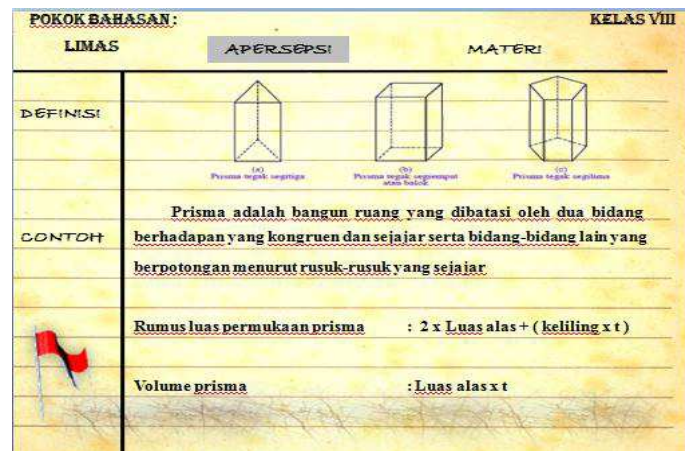 POKOK BAHASAN :
KELAS VIII
LIMAS
APERSEPSI
MATERI
DEFINISI
(a)
Prisma tegak segitiga
(b)
Prisma tegak segiempat
atau balok
(c)
Prisma tegak segilima
CONTOH
Prisma adalah bangun ruang yang dibatasi oleh dua bidang
berhadapan yang kongruen dan sejajar serta bidang-bidang lain yang
berpotongan menurut rusuk-rusuk yang sejajar
Rumus luas permukaan prisma : 2 x Luas alas + ( keliling x t )
Volume prisma : Luas alas x t